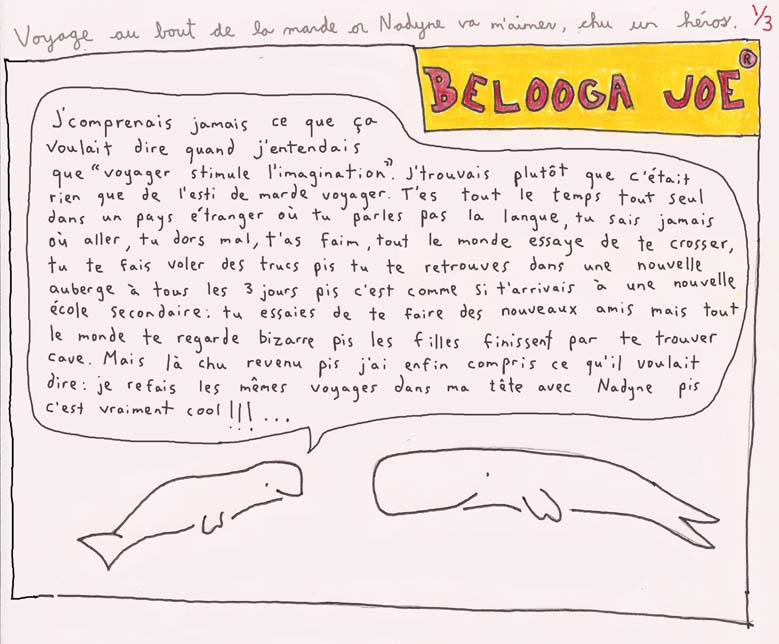 Voyage au bout de la marde or Nadyne va m'aimer, chu un héros. 1/3
BELOOGA JOE®
J'comprenais jamais ce que ça
voulait dire quand j'entendais
que "voyager stimule l'imagination". J'trouvais plutôt que c'était
rien que de l'esti de marde voyager. T'es tout le temps tout seul
dans un pays étranger où tu parles pas la langue, tu sais jamais
où aller, tu dors mal, t'as faim, tout le monde essaye de te crosser,
tu te fais voler des trucs pis tu te retrouves dans une nouvelle
auberge à tous les 3 jours pis c'est comme si t'arrivais à une nouvelle
école secondaire: tu essaies de te faire des nouveaux amis mais tout
le monde te regarde bizarre pis les filles finissent par te trouver
cave. Mais là chu revenu pis j'ai enfin compris ce qu'il voulait
dire: je refais les mêmes voyages dans ma tête avec Nadyne pis
c'est vraiment cool!!!...